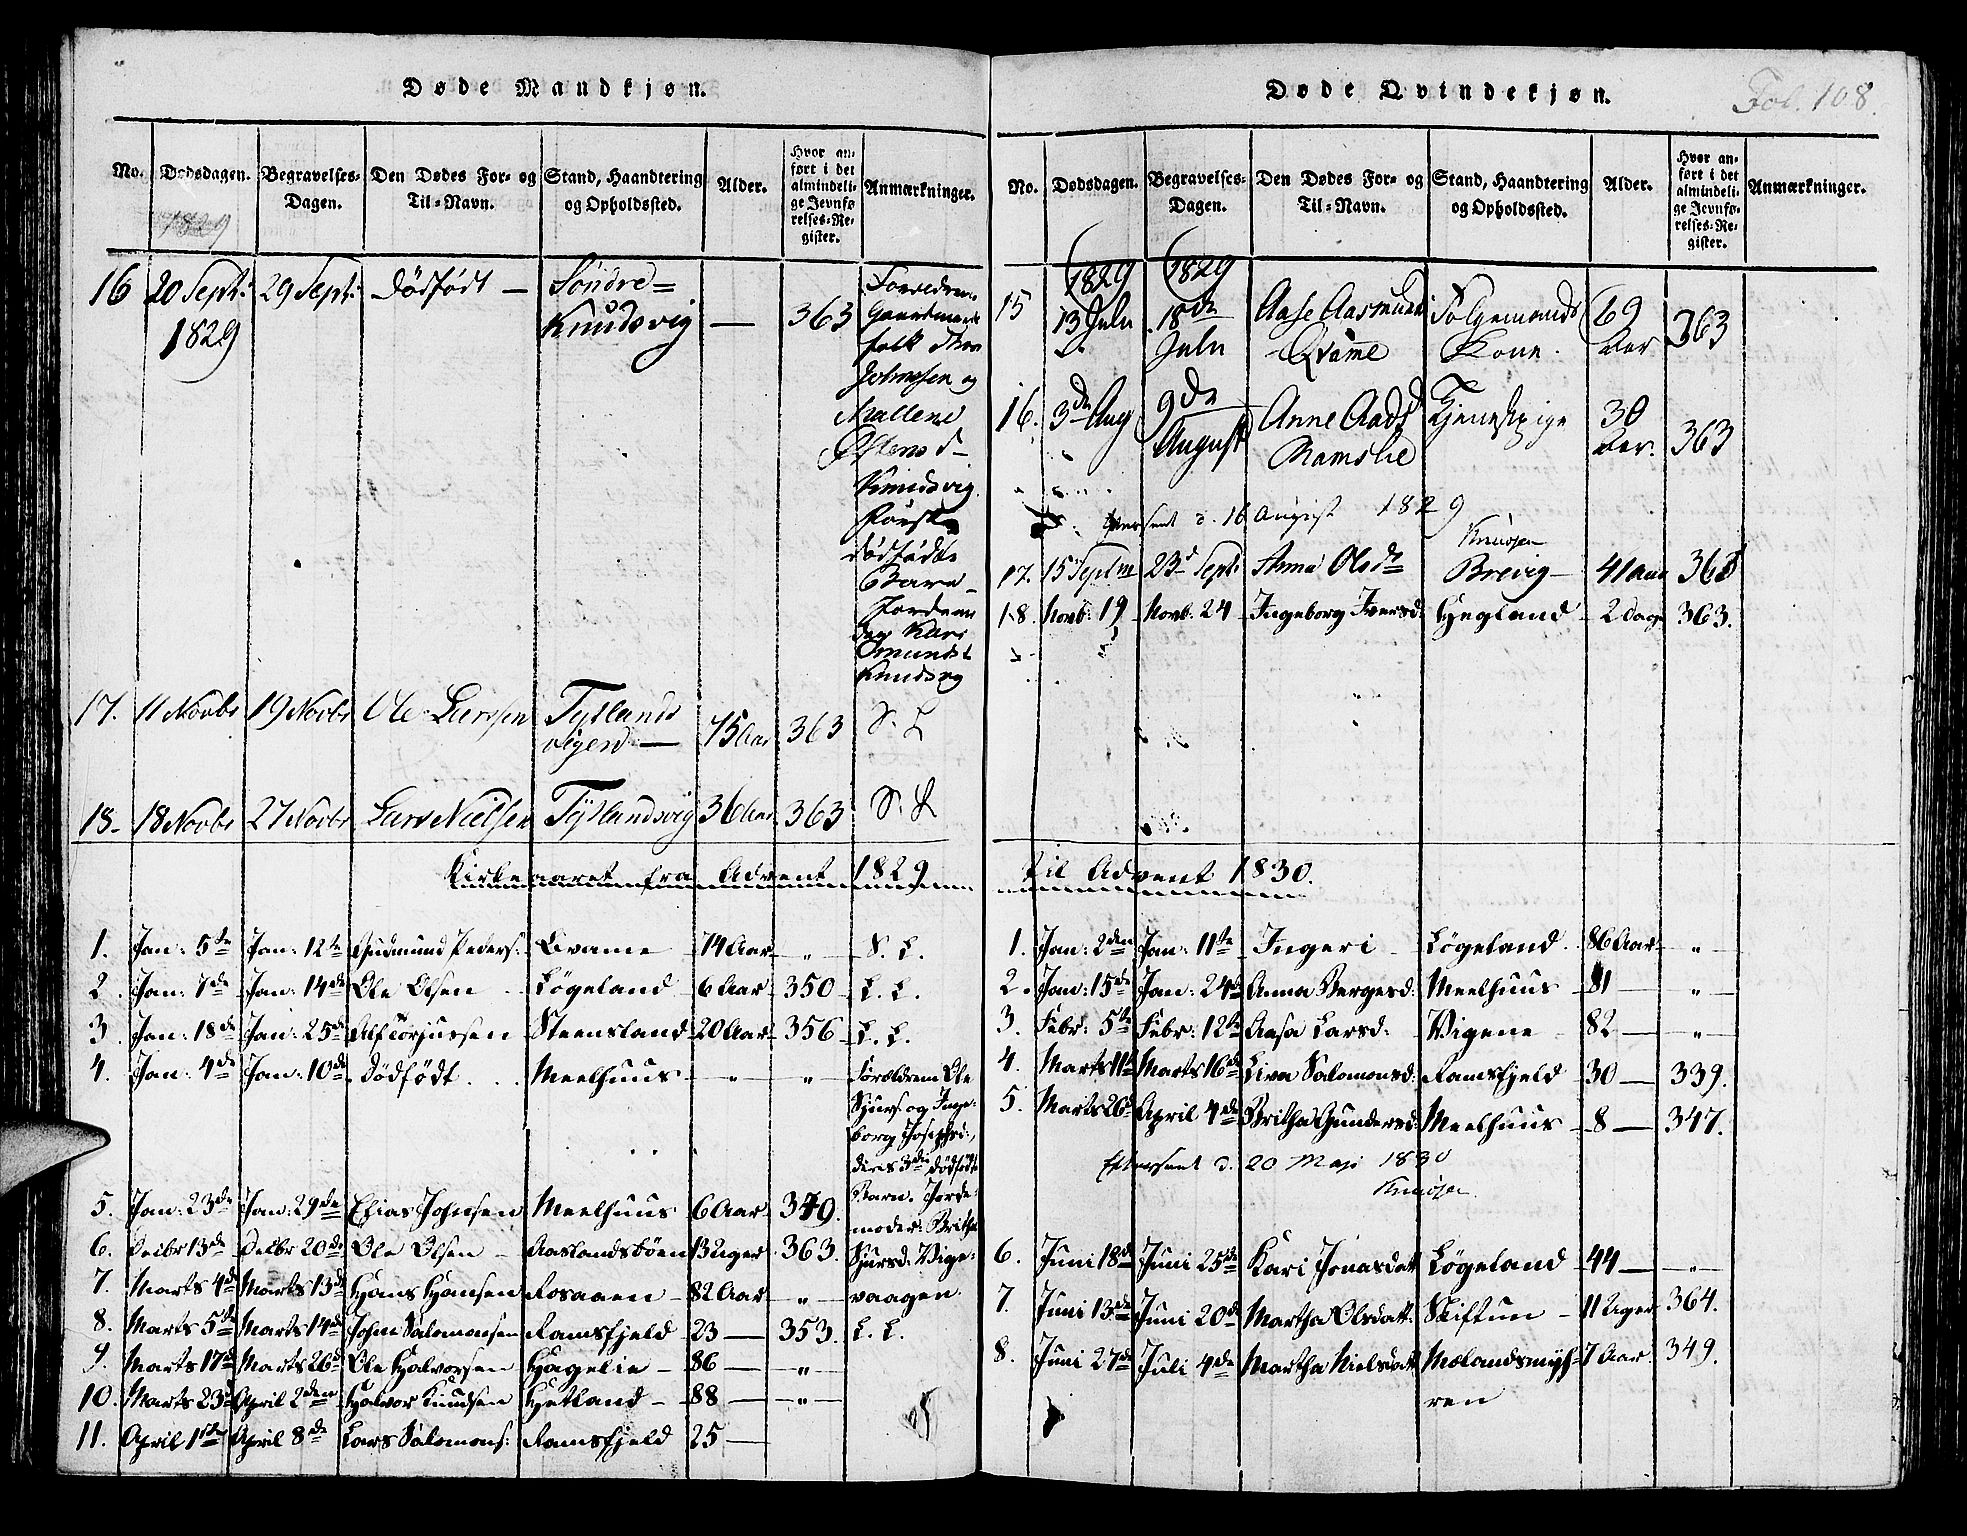 Døde Mandkjøn.
No. Dødsdagen. Begravelses-Dagen. Den Dødes For- og Til-Navn. Stand, Haandtering og Opholdssted. Alder. Hvor anført i det almindelige Jevnførelses-Register. Anmærkninger.
1829
16 20 Sept: 1829 29 Sept: Dödfödt – Söndre= Knudsvig — 363
Johnssen og
Mallene
Knudsvig
dödfödte
Barn –
Kari
17. 11 Novbr 19 Novbr Ole Larssen Tytlands vigen — 75 Aar 363 S. L
18– 18 Novbr 27 Novbr Lars Nielsen Tytlandsvig 36 Aar 363 S. L
Kirkeaaret fra Advent 1829
1. Jan: 5te Jan: 12te Gudmund Peders: Qvame 74 Aar „ S. L.
2. Jan: 7de Jan: 14de Ole Olsen Lögeland 6 Aar 350 L. L.
3. Jan: 18de Jan: 25de Alf Torjussen Steensland 20 Aar 356 L. L.
4. Jan: 4de Jan: 10de Dödfödt. Meelhuus „ „ Forældrene Ole
Sjurs og Inge-
borg Josephsd:,
deres 3die dödfödte
Barn. Jorde-
moder: Britha
Sjursd: Vige-
vaagen.
5. Jan: 23de Jan: 29de Elias Johnsen Meelhuus 6 Aar 349.
6. Decbr 13de Decbr 20de Ole Olsen – Aaslandsböen 13 Uger 363.
7. Marts 4de Marts 13de Hans Hansen Fosaaen – 82 Aar „
8. Marts 5te Marts 14de John Salomonsen Ramsfjeld 23 — 353. L. L.
9. Marts 17de Marts 26de Ole Halvorsen Hagelie – 86 — „
10. Marts 23de April 2den Halvor Knudsen Hetland – 88 — „
11. April 1ste April 8de Lars Salomons: Ramsfjeld 25 —
Døde Qvindekjøn.
Fol. 108.
No. Dødsdagen. Begravelses-Dagen. Den Dødes For- og Til-Navn. Stand, Haandtering og Opholdssted. Alder. Hvor anført i det almindelige Jevnførelses-Register. Anmærkninger.
15 1829 13 July 1829 18de July Aase Aasmunds Qvame Folgemands Kone. 69 Aar 363
16. 3de Aug 9de August Anne Aadsd Ramslie Tjenestpige 30 Aar. 363
d. 16 August 1829
Knudsen
17. 15 Septm 23d Sept: Anna Olsd Brevig – 41 Aar 363
18. Novb: 19 Novb: 24 Ingeborg Iversd: Hegland 2 Dage 363.
til Advent 1830.
1. Jan: 2den Jan: 11te Ingeri – Lögeland. 86 Aar „
2. Jan: 15de Jan: 24de Anna Bergesd: Meelhuus 81 — „
3. Febr: 5te Febr: 12te Aasa Larsd: Vigene 82 — „
4. Marts 11te Marts 16de Liva Salomonsd: Ramsfjeld 30 — 339.
5. Marts 26de April 4de Britha Gundersd: Meelhuus – 8 — 347.
Efterseet d. 20 Maji 1830
Knudsen
6. Juni 18de Juni 25de Kari Jonasdatt Lögeland 44 — „
7. Juni 13de Juni 20de Martha Olsdatt: Skiftun – 11 Uger 364.
8. Juni 27de Juli 4de Martha Nielsdatt Mælandsmyh- 7 Aar. 349.
ren